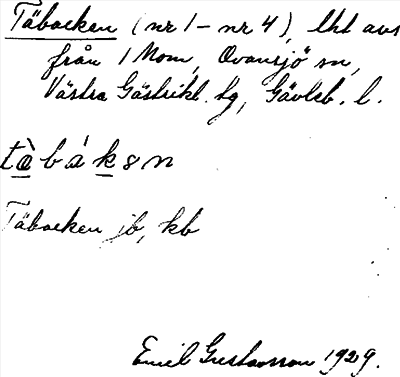 Täbacken (nr 1 – nr 4), lht avs
från 1 Mom, Ovansjö sn,
Västra Gästrikl. tg, Gävleb. l.
tàbákən
Täbacken jb, kb
Emil Gustavsson 1929.